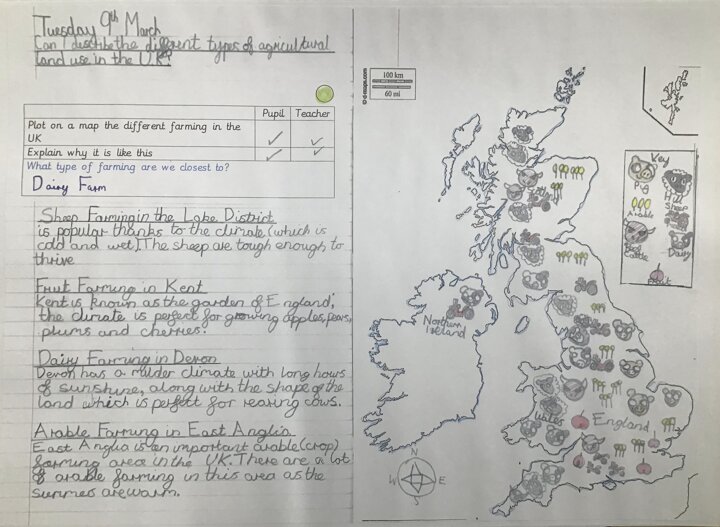 Tuesday 9th March
Can I describe the different types of agricultural
land use in the UK?
Pupil Teacher
Plot on a map the different farming in the
UK
Explain why it is like this
What type of farming are we closest to?
Dairy Farm
Sheep Farming in the Lake District
is popular thanks to the climate (which is
cold and wet). The sheep are tough enough to
thrive
Fruit Farming in Kent
Kent is known as the garden of England;
the climate is perfect for growing apples, pears,
plums and cherries.
Dairy Farming in Devon
Devon has a milder climate with long hours
of sunshine, along with the shape of the
land which is perfect for rearing cows.
Arable Farming in East Anglia
East Anglia is an important arable (crop)
farming area in the UK. There are a lot
of arable farming in this area as the
summers are warm.
100 km
60 mi
© d-maps.com
Key
Pig
Hill
Sheep
Arable
Beef
Cattle
Dairy
Fruit
Northern
Ireland
Wales
England
N
W E
S